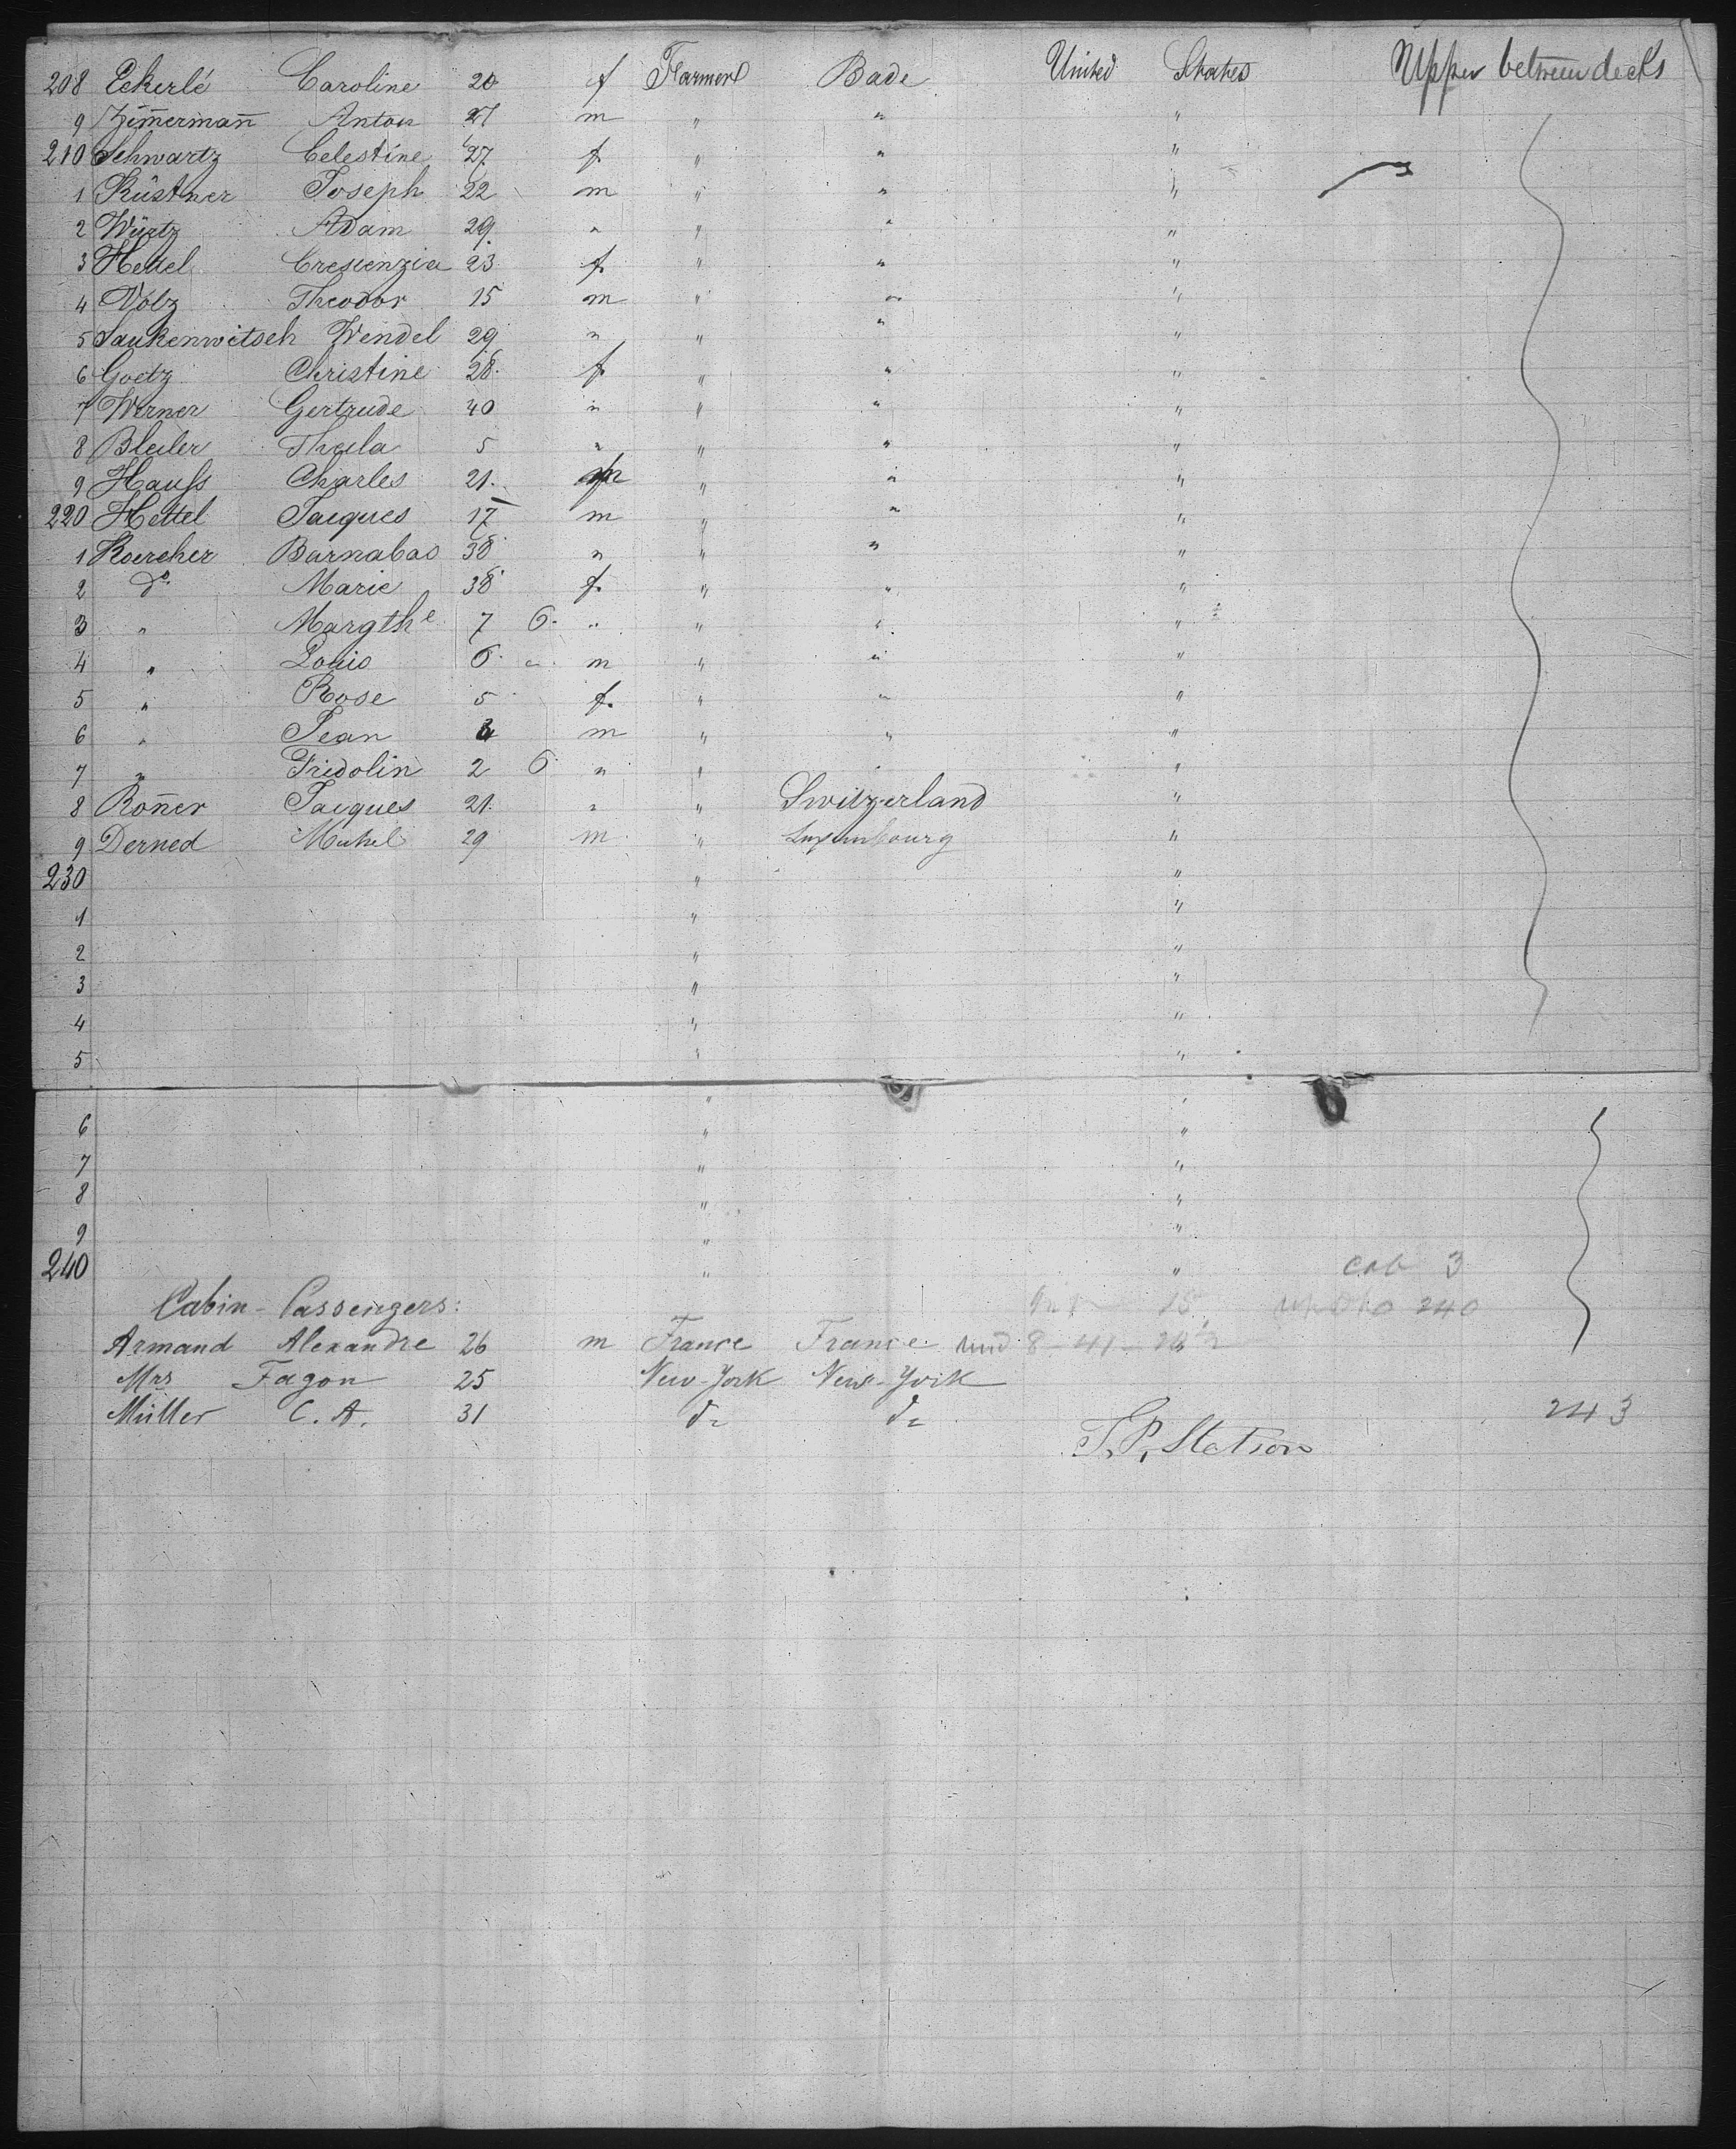 208 Eckerlé Caroline 20 f Farmer Bade United States Upper between decks
9 Zim̄erman̄ Anton 27 m " " "
210 Schwartz Celestine 27 f. " " "
1 Küstner Joseph 22 m " " "
2 Würtz Adam 29. " " " "
3 Hettel Crescenzia 23 f. " " "
4 Volz Theodor 15 m " " "
5 Saukenwitsch Wendel 29 " " " "
6 Goetz Christine 28. f. " " "
7 Werner Gertrude 40 " " " "
8 Bleiler Thecla 5 " " " "
9 Hauss Charles 21. m " " "
220 Hettel Jacques 17 m " " "
1 Koercher Barnabas 38 " " " "
2 do Marie 38 f. " " "
3 " Margthe 7 6. " " " "
4 " Louis 6. " m " " "
5 " Rose 5 f. " " "
6 " Jean m " " "
7 " Fridolin 2 6 " " " "
8 Ron̄er Jacques 21. " " Switzerland "
9 Derned Michel 29 m " Luxembourg "
230 " "
1 " "
2 " "
3 " "
4 " "
5 " "
" "
6 " "
7 " "
8 " "
9 " "
240 " " cab 3
Cabin-Passengers: 15 240
Armand Alexandre 26 m France France 8 - 41 -
Mrs Fagon 25 New-York New-York
Müller C. A. 31 do do 243
S. P. Station